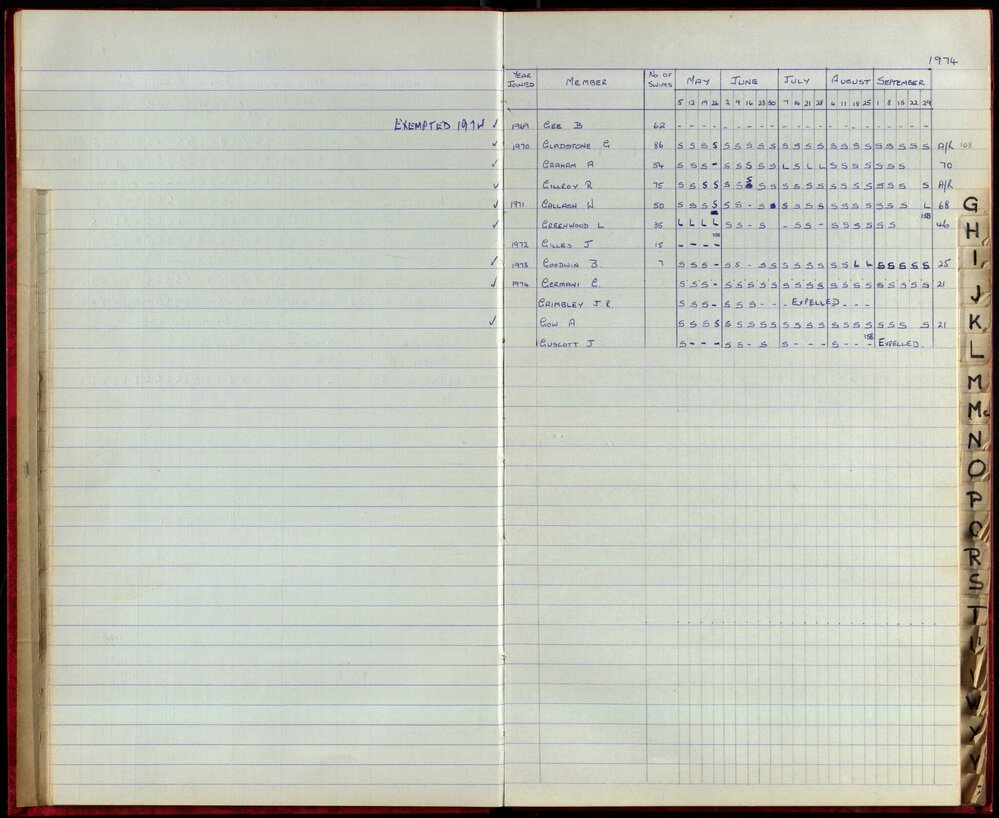 1974
YEAR JOINED MEMBER No. OF SWIMS MAY JUNE JULY AUGUST SEPTEMBER
5 12 19 26 2 9 16 23 30 7 14 21 28 4 11 18 25 1 8 15 22 29
EXEMPTED 1974 ✓ 1969 GEE B 62 - - - - - - - - - - - - - - - - - - - - - -
✓ 1970 GLADSTONE G 86 S S S S S S S S S S S S S S S S S S S S S S A/R 108
✓ GRAHAM A 54 S S S - S S S S S L S L L S S S S S S S 70
✓ GILLROY R 75 S S S S S S S S S S S S S S S S S S S S S A/R
✓ 1971 GALLAGH W 50 S S S S S S - S S S S S S S S S S S S S L 68
✓ GREENWOOD L 35 L L L L S S - S - S S - S S S S S S 158 46
1972 GILLES J 15 - - - - 158
✓ 1973 GOODWIN B. 7 S S S - S S - S S S S S S S S L L S S S S S 25
✓ 1974 GERMANI C. S S S - S S S S S S S S S S S S S S S S S S 21
GRIMBLEY J.R. S S S - S S S - - - EXPELLED - - -
✓ GOW A S S S S S S S S S S S S S S S S S S S S S 21
GUSCOTT J S - - - S S - S S - - - S - - - 158 EXPELLED.
G
H
I
J
K
L
M
Mc
N
O
P
Q
R
S
T
U
W
Y